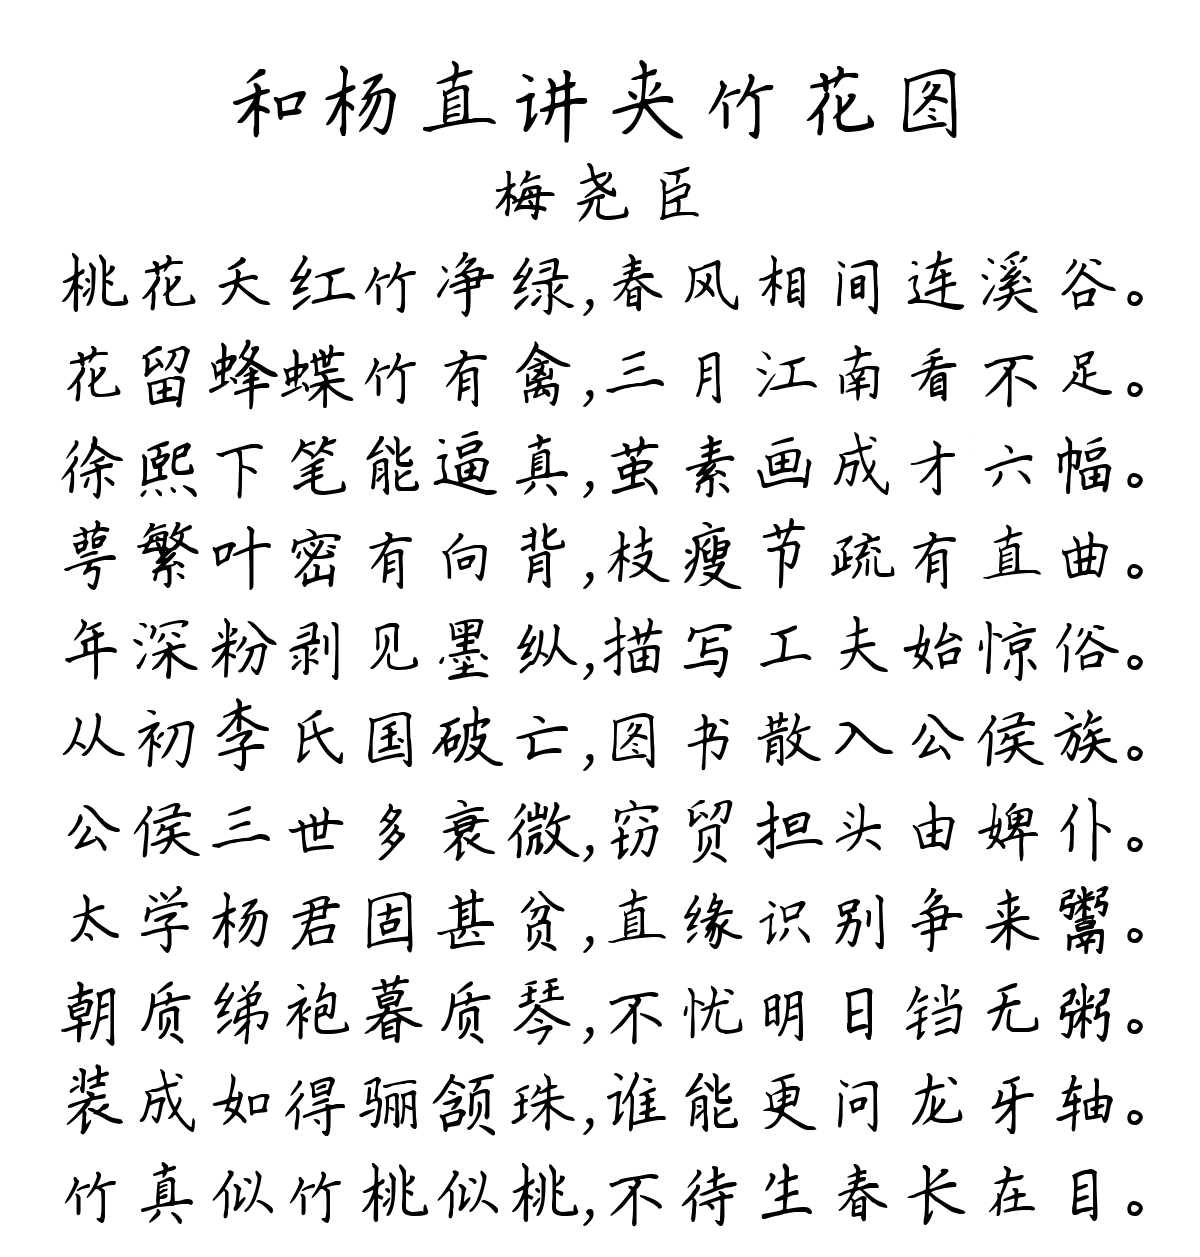 和杨直讲夹竹花图
梅尧臣
桃花夭红竹净绿,春风相间连溪谷。
花留蜂蝶竹有禽,三月江南看不足。
徐熙下笔能逼真,茧素画成才六幅。
萼繁叶密有向背,枝瘦节疏有直曲。
年深粉剥见墨纵,描写工夫始惊俗。
从初李氏国破亡,图书散入公侯族。
公侯三世多衰微,窃贸担头由婢仆。
太学杨君固甚贫,直缘识别争来鬻。
朝质绨袍暮质琴,不忧明日铛无粥。
装成如得骊颔珠,谁能更问龙牙轴。
竹真似竹桃似桃,不待生春长在目。